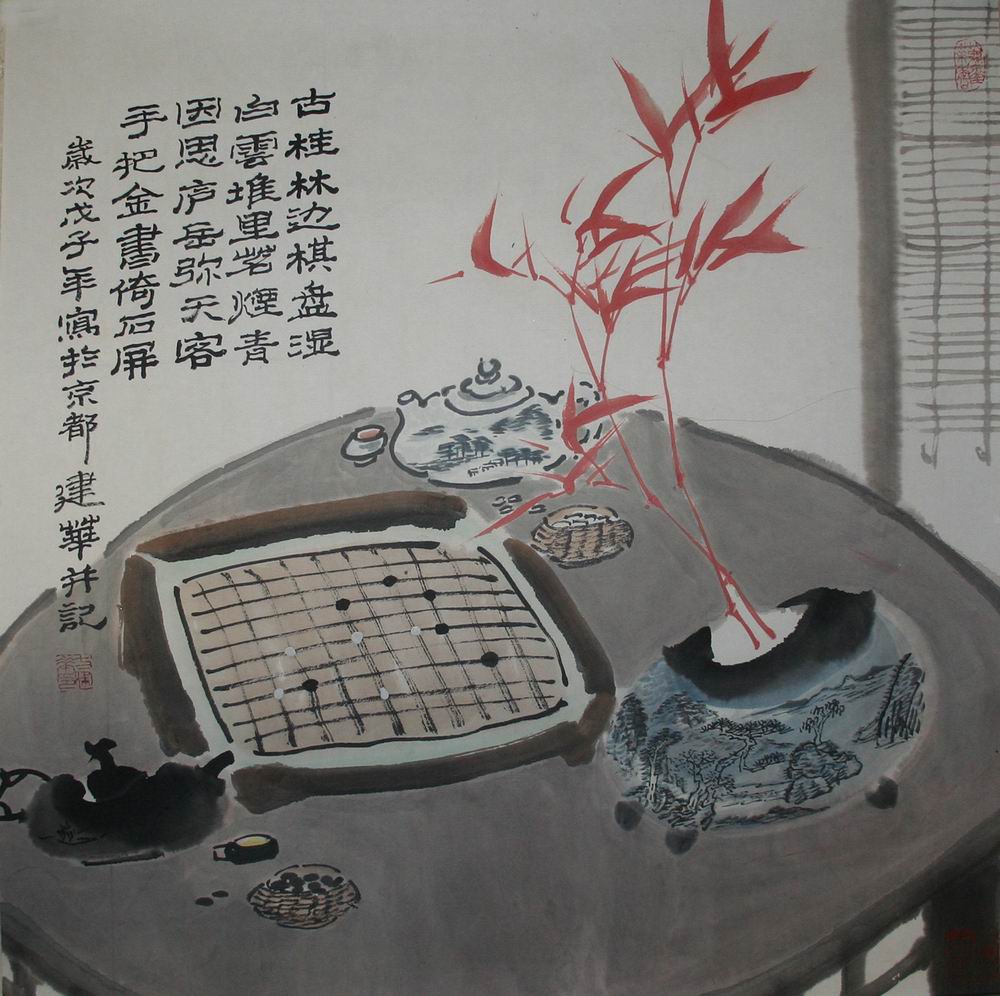 古桂林边棋盘湿
白雲堆里茗煙青
因思庐岳弥天客
手把金書倚石屏
歲次戊子年寫於京都建華并記